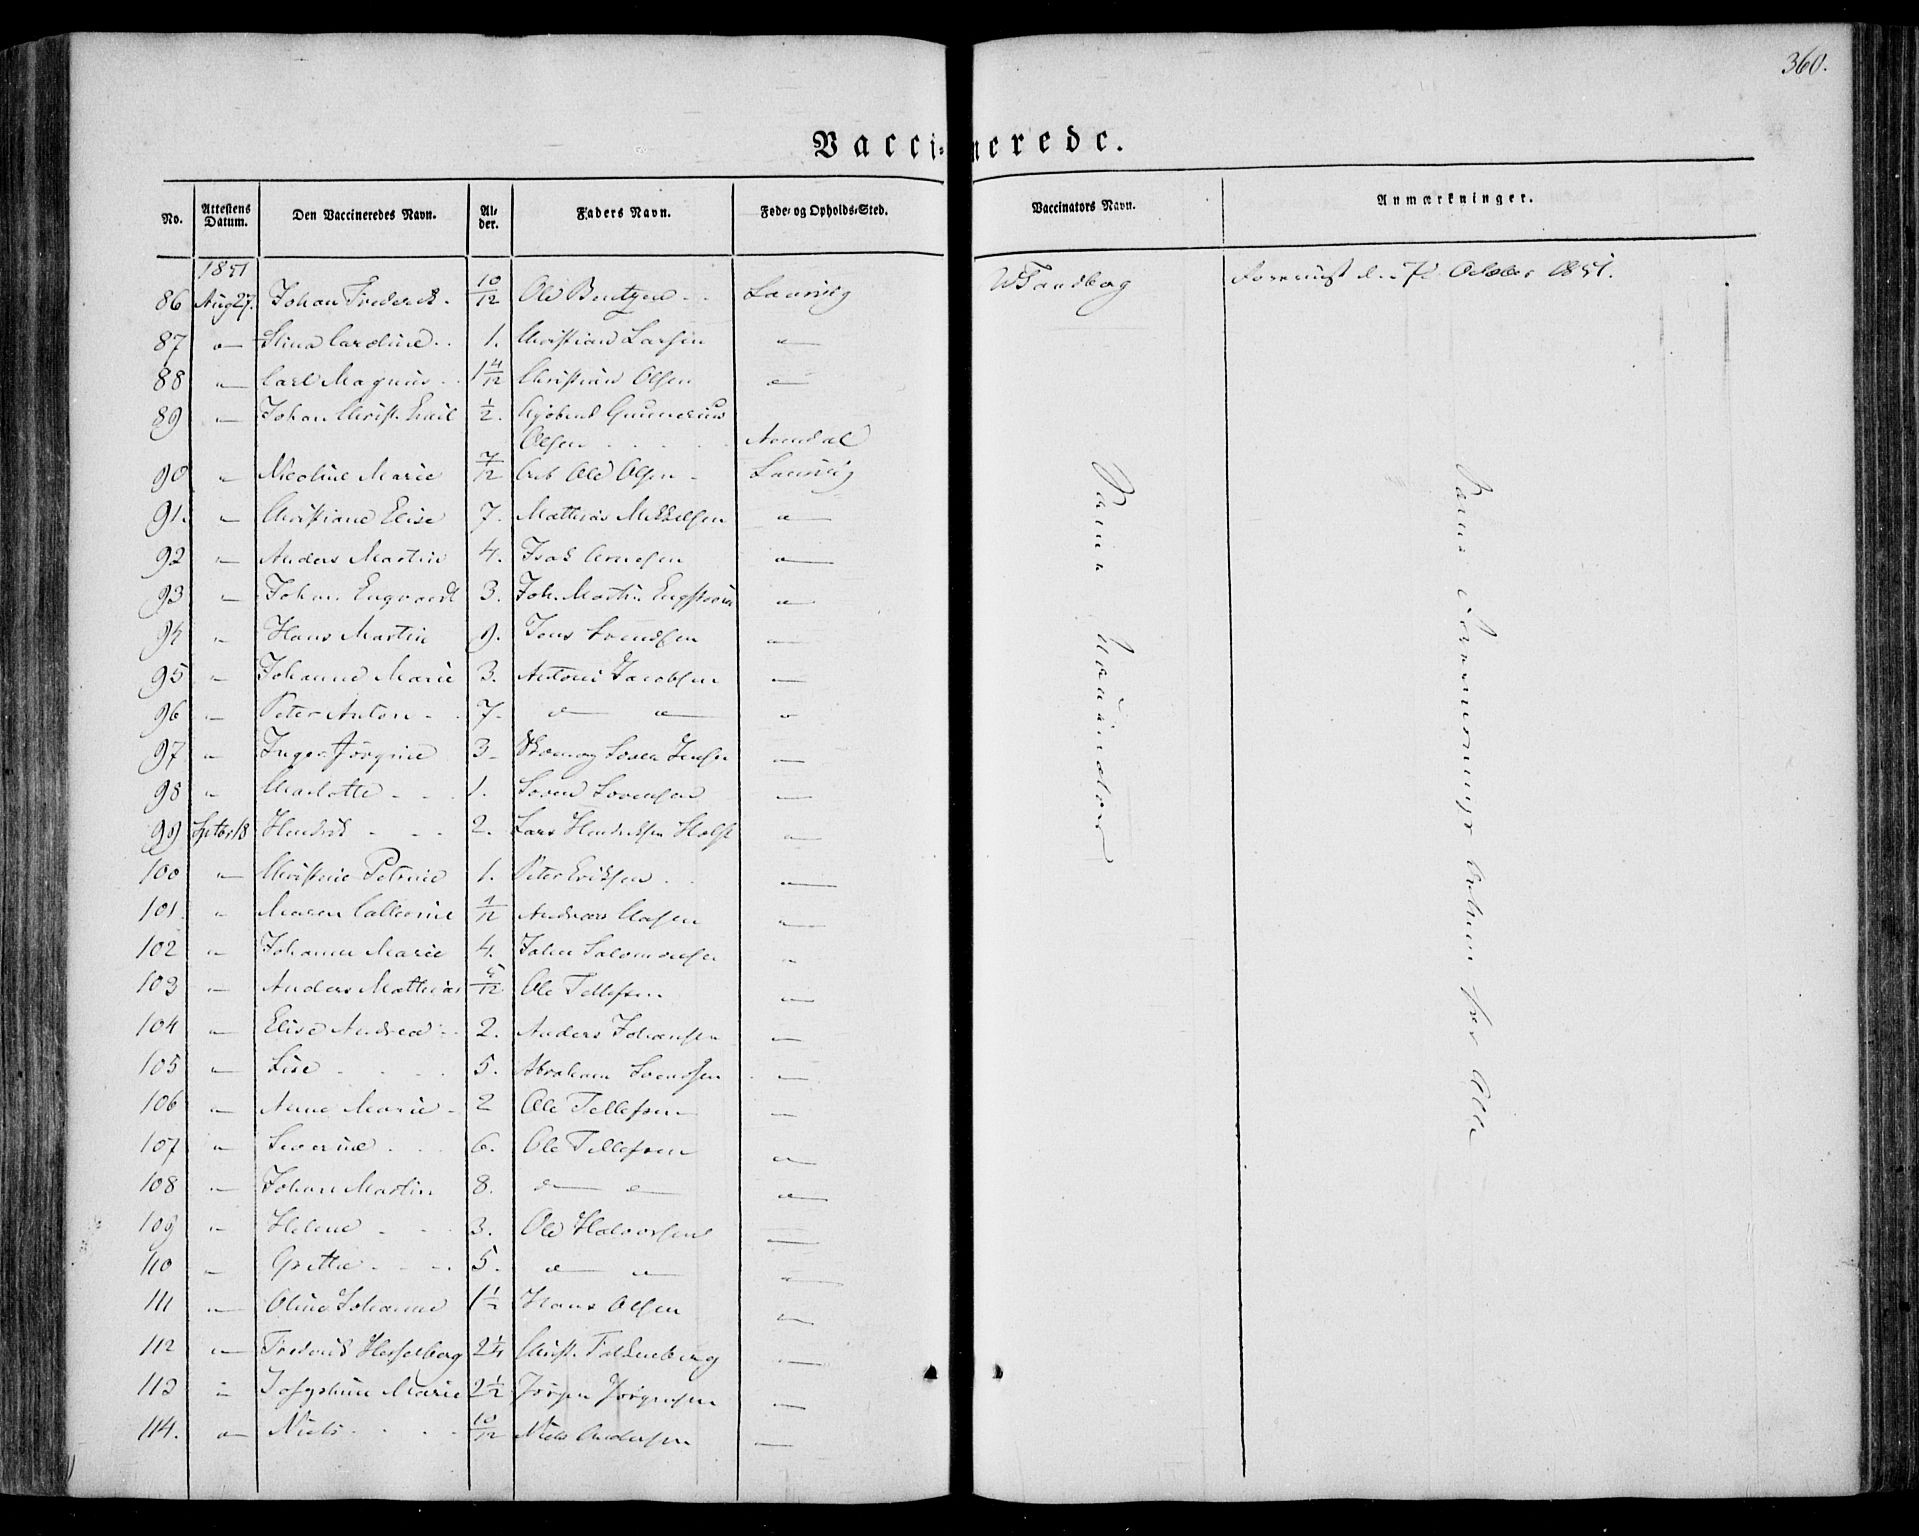 360.
Vaccinerede.
No. Attestens Datum. Den Vaccineredes Navn. Alder. Faders Navn. Føde- og Opholds-Sted. Vaccinators Navn. Anmærkninger.
1851
86 Aug 27. Johan Frederik 10/12 Ole Bentzen Laurvig Forevist d. 7d October 1851.
87 " Stina Caroline 1. Christian Larsen "
88 " Carl Magnus 1 4/12 Christian Olsen "
89 " Johan Christ. Emil 1/2. Gunnerius
Olsen Arendal
90 " Nicoline Marie 7/12 Arb Ole Olsen Laurvig
91. " Christiane Elise 7. Mathias Mikkelsen "
92 " Anders Martin 4. Isak Arnesen "
93 " Johan Engvardt 3. Joh. Martin Engstrøm "
94 " Hans Martin 9. Jens Svendsen "
95 " Johanne Marie 3. Antoni Jacobsen "
96 " Peter Anton 7. " " "
97 " Inger Jørgine 3 Søren Jensen "
98 " Charlotte 1. Soren Sorensen "
99 Septbr 18 Hendrik 2. Lars Hendriksen Holst "
100 " Christine Petrine 1. Peter Eriksen "
101. " Maren Cathrine /12 Andreas Olsen "
102 " Johanne Marie 4. Johan Salomonsen "
103 " Anders Mathias 5/12 Ole Tellefsen "
104 " Elise Andrea 2. Anders Johansen "
105 " Lise 5. Abraham Svendsen "
106 " Anne Marie 2 Ole Tellefsen "
107 " Severine 6. Ole Tellefsen "
108 " Johan Martin 8. " " "
109 " Helene 3. Ole Halvorsen "
110 " Grethe 5. " " "
111 " Oline Johanne 1 1/2 Hans Olsen "
112 " Frederik Hesselberg 2 1/4 Christ. Falkenberg "
113 " Josephine Marie 2 1/2 Jørgen Jørgensen "
114. " Niels 10/12 Niels Andersen "
Samme
Samme for Alle